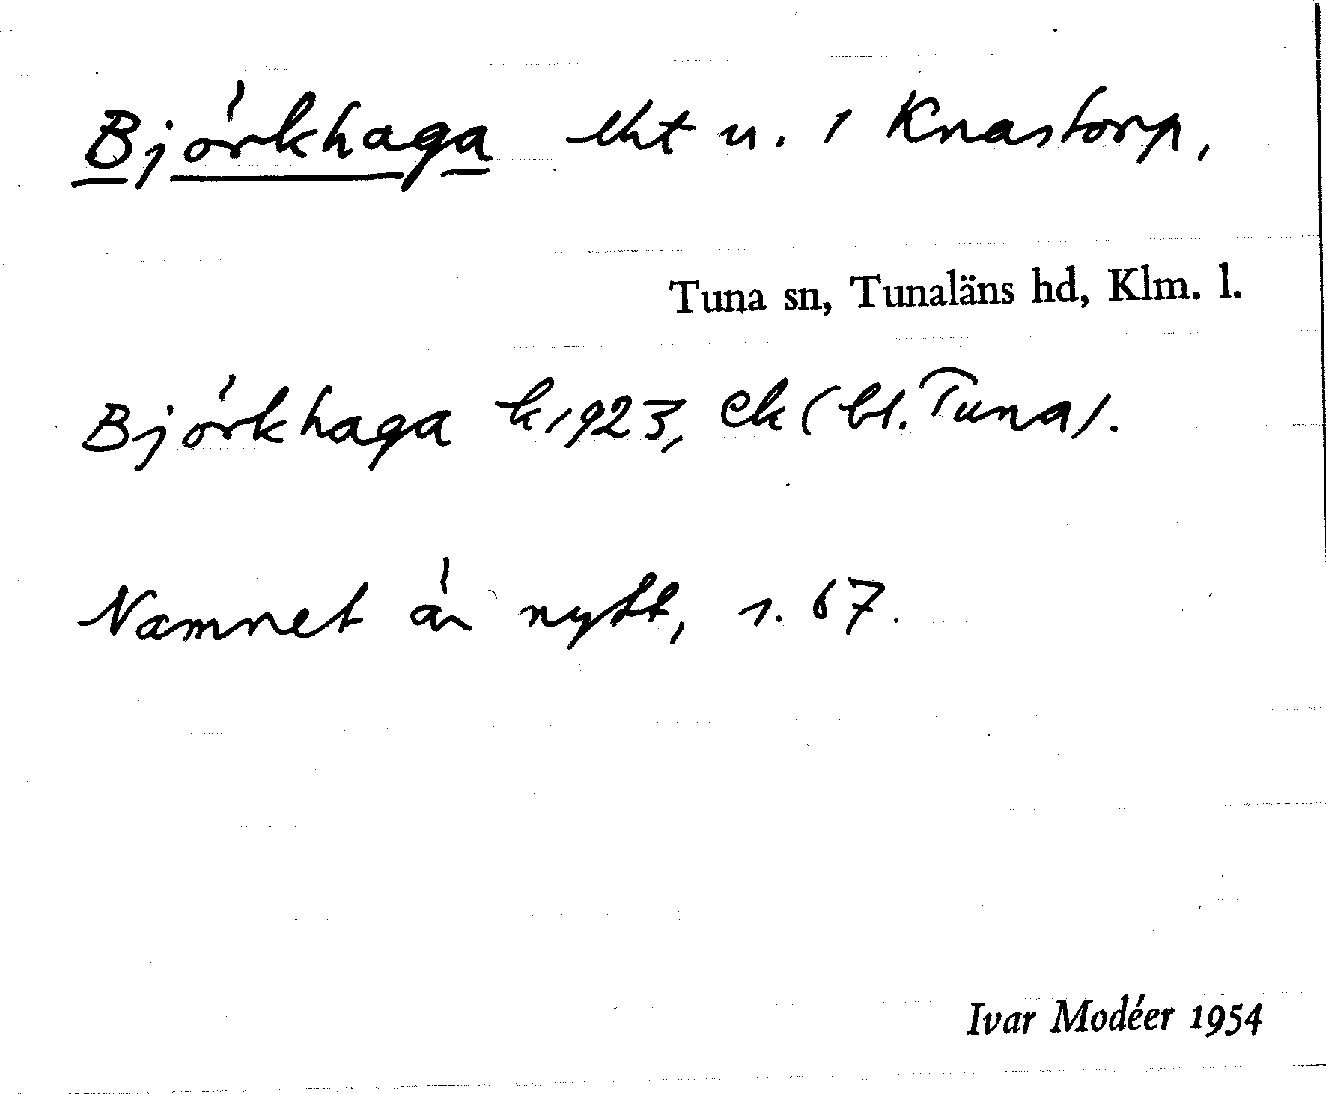 Björkhaga lht u. 1 Knastorp,
Tuna sn, Tunaläns hd, Klm. l.
Björkhaga k 1923, ek (bl. Tuna).
Namnet är nytt, s. 67.
Ivar Modéer 1954